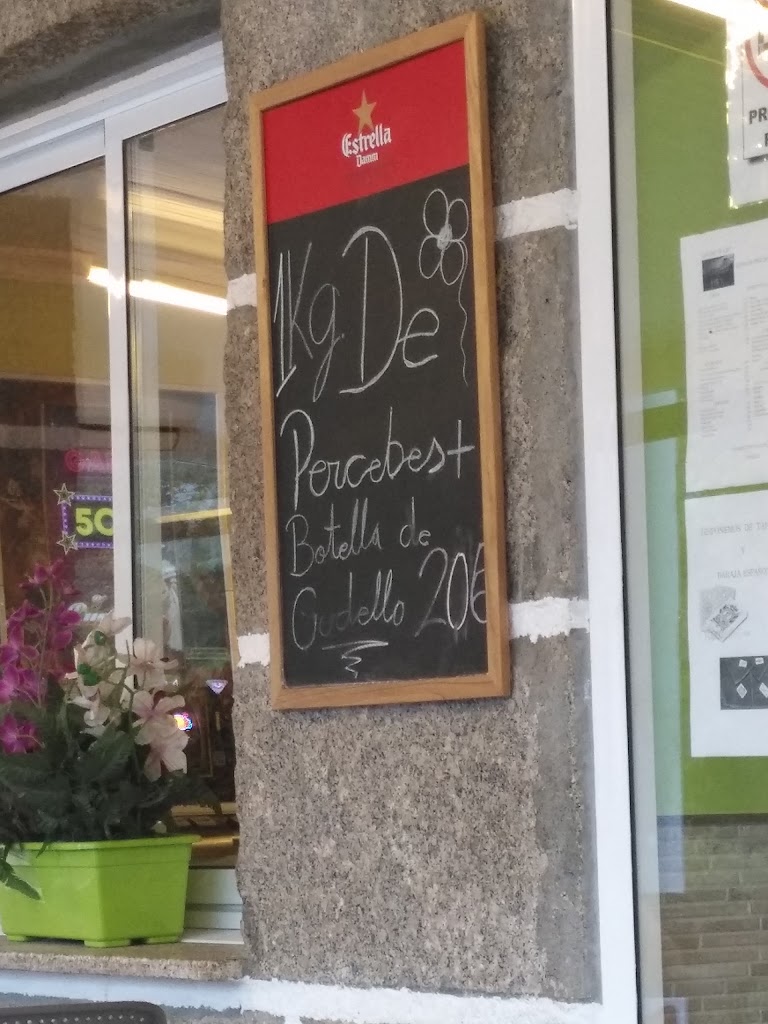 Estrella
Damm
1Kg De
Percebes+
Botella de
Godello 20€
50
PR
DISPONEMOS DE
Y
BARAJA ESPAÑO